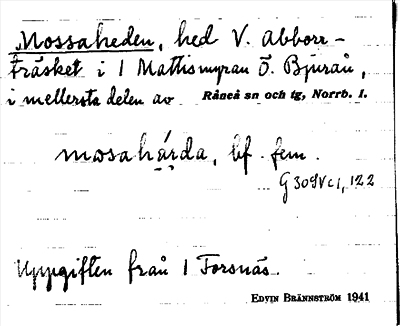 Mossaheden, hed V. Abborr-
träsket i 1 Mattismyran Ö. Bjurån,
i mellersta delen av Råneå sn och tg, Norrb. l.
mosahárda, bf. fem.
G 309 V c 1, 122
Uppgiften från 1 Forsnäs.
Edvin Brännström 1941